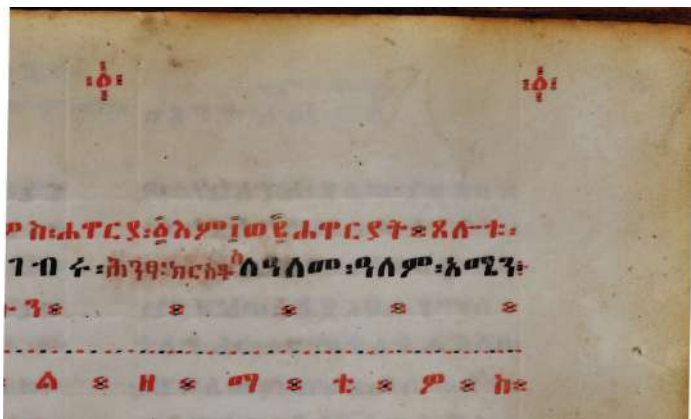 ፩ ፩
ም ስ፡ሐዋርያ፡፩እም፲ወ፪ሐዋርያት፨ጸሎቱ፡
ገብሩ፡ሕንፃ፡ክርስቶስ ለዓለመ፡ዓለም፡አሜን፡
ን፨ ፨ ፨ ፨ ፨
ል ፨ ዘ ፨ ማ ፨ ቴ ፨ ዎ ፨ ስ፨